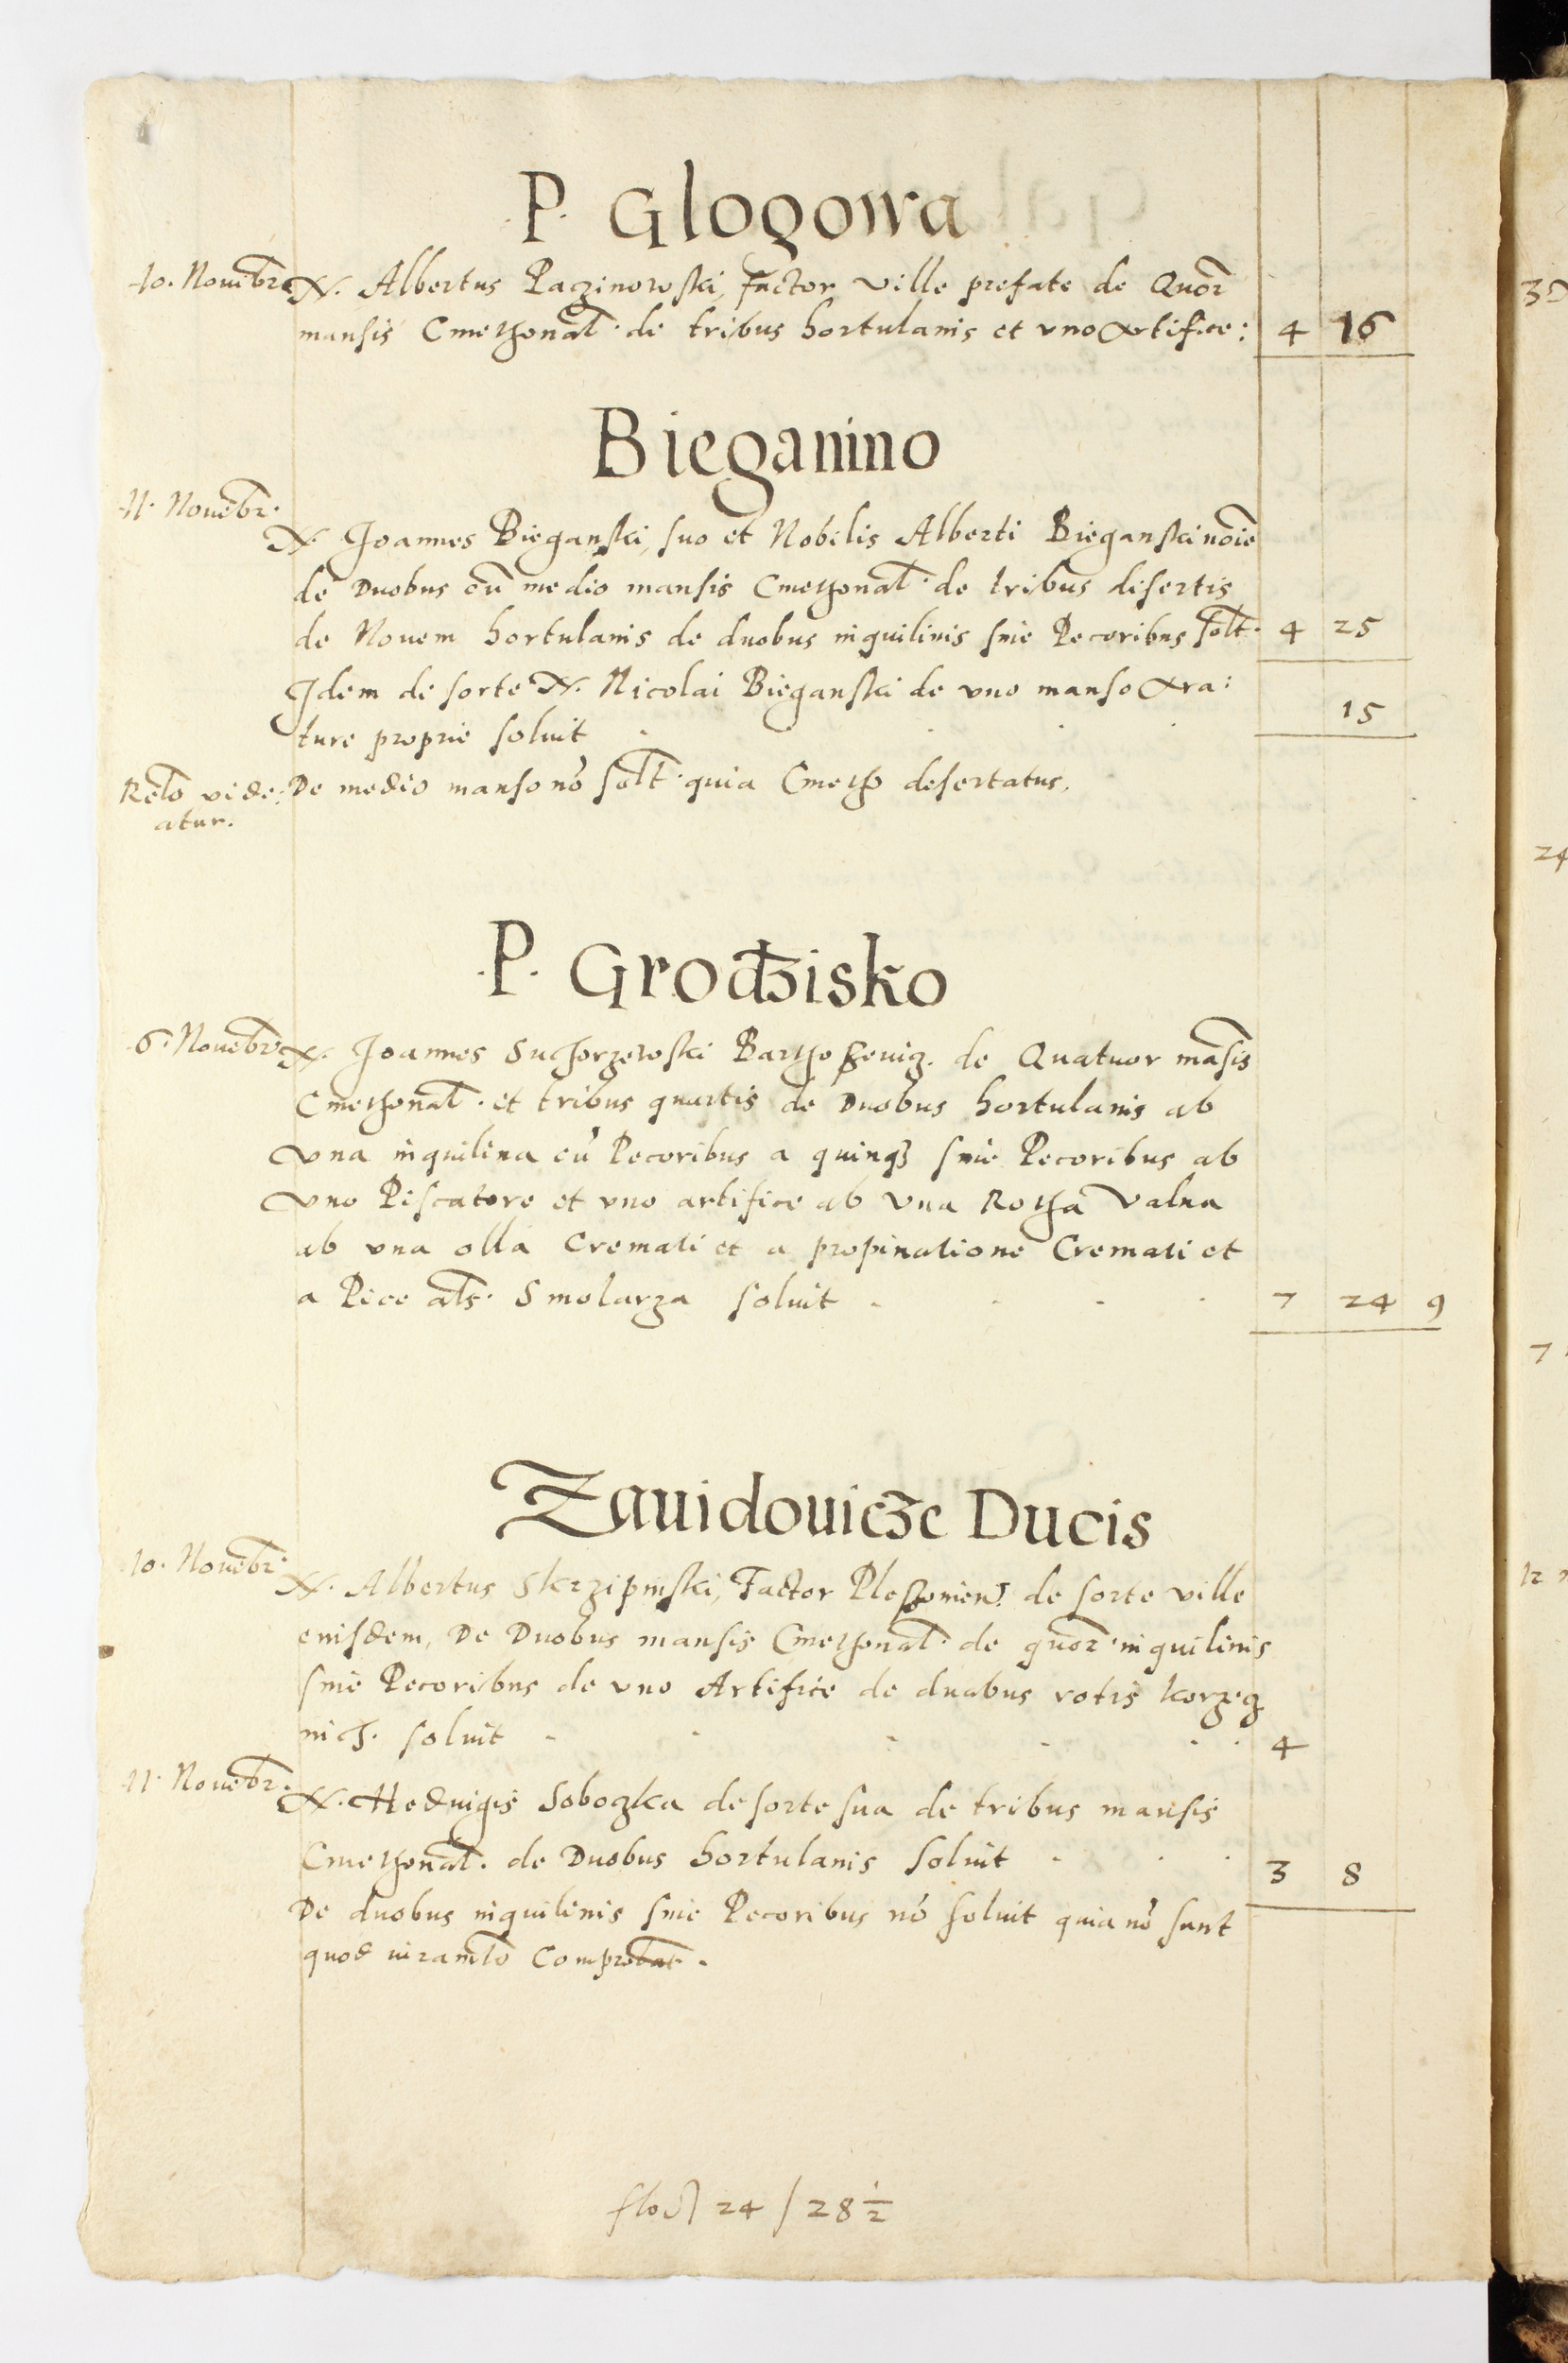 P. Glogowa
10. Nouēbr. N. Albertus Paczinowski, factor ville prefate de Quor̄
mansis Cmethonal̄. de tribus hortulanis et vno Artifice: 4 16
Bieganino
11. Nouēbr.
N. Joannes Bieganski, suo et Nobilis Alberti Bieganski noīe
de Duobus cū medio mansis Cmethonal̄. de tribus desertis
de Nouem hortulanis de duobus inquilinis sine Pecoribus solt. 4 25
Idem de sorte N. Nicolai Bieganski de vno manso Ara:
ture proprie soluit 15
Retō vide: De medio manso nō solt. quia Cmetho desertatus.
atur.
P. Grodzisko
6. Nouēbr. N. Joannes Suchorzewski de Quatuor māsis
Cmethonal̄. et tribus quartis de Duobus hortulanis ab
vna inquilina cū Pecoribus a quinq3 sine Pecoribus ab
vno Piscatore et vno artifice ab vna Rotha Valna
ab vna olla Cremati et a propinatione Cremati et
a Pice als. Smolarza soluit 7 24 9
Zauidouicze Ducis
10. Nouēbr.
N. Albertus Skrzipinski, Factor de sorte ville
eiusdem, De Duobus mansis Cmethonal̄. de quor̄ inquilinis
sine Pecoribus de vno Artifice de duabus rotis korzecz
nich. soluit 4
11. Nouēbr.
N. Heduigis Soboczka de sorte sua de tribus mansis
Cmethonal̄. de Duobus hortulanis soluit 3 8
De duobus inquilinis sine Pecoribus nō soluit quia nō sunt
quod iuramtō Comprobat.
24 / 28 1/2